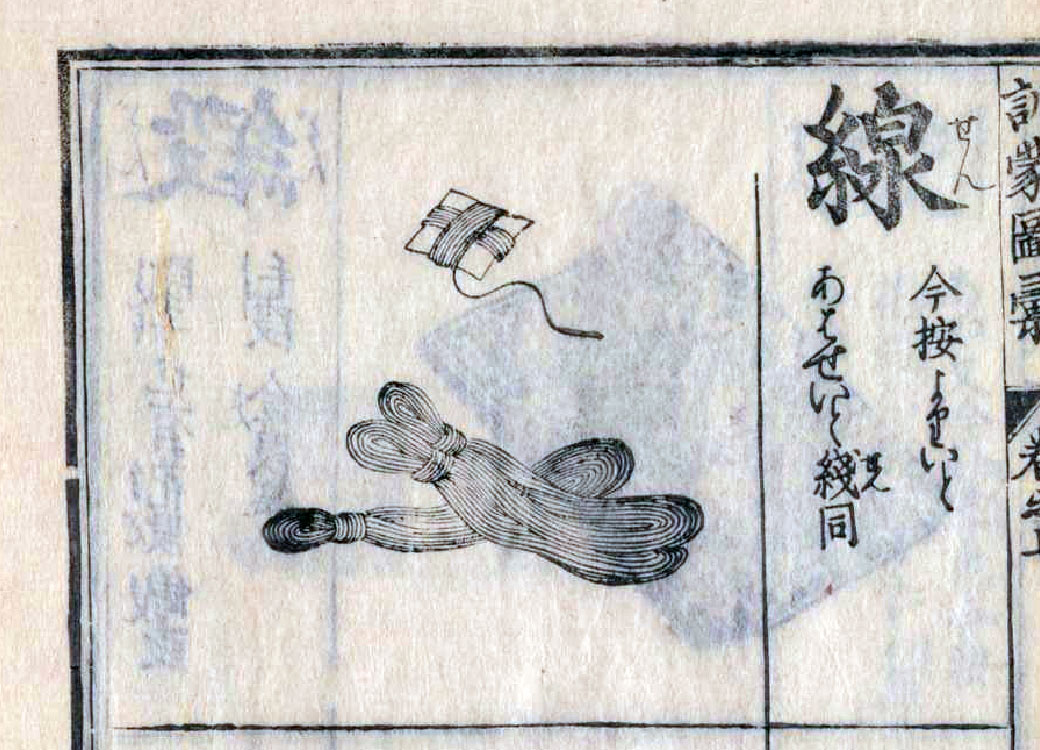 訓蒙圖彙
線
せん
今按よりいと
あはせいと綫同
せん